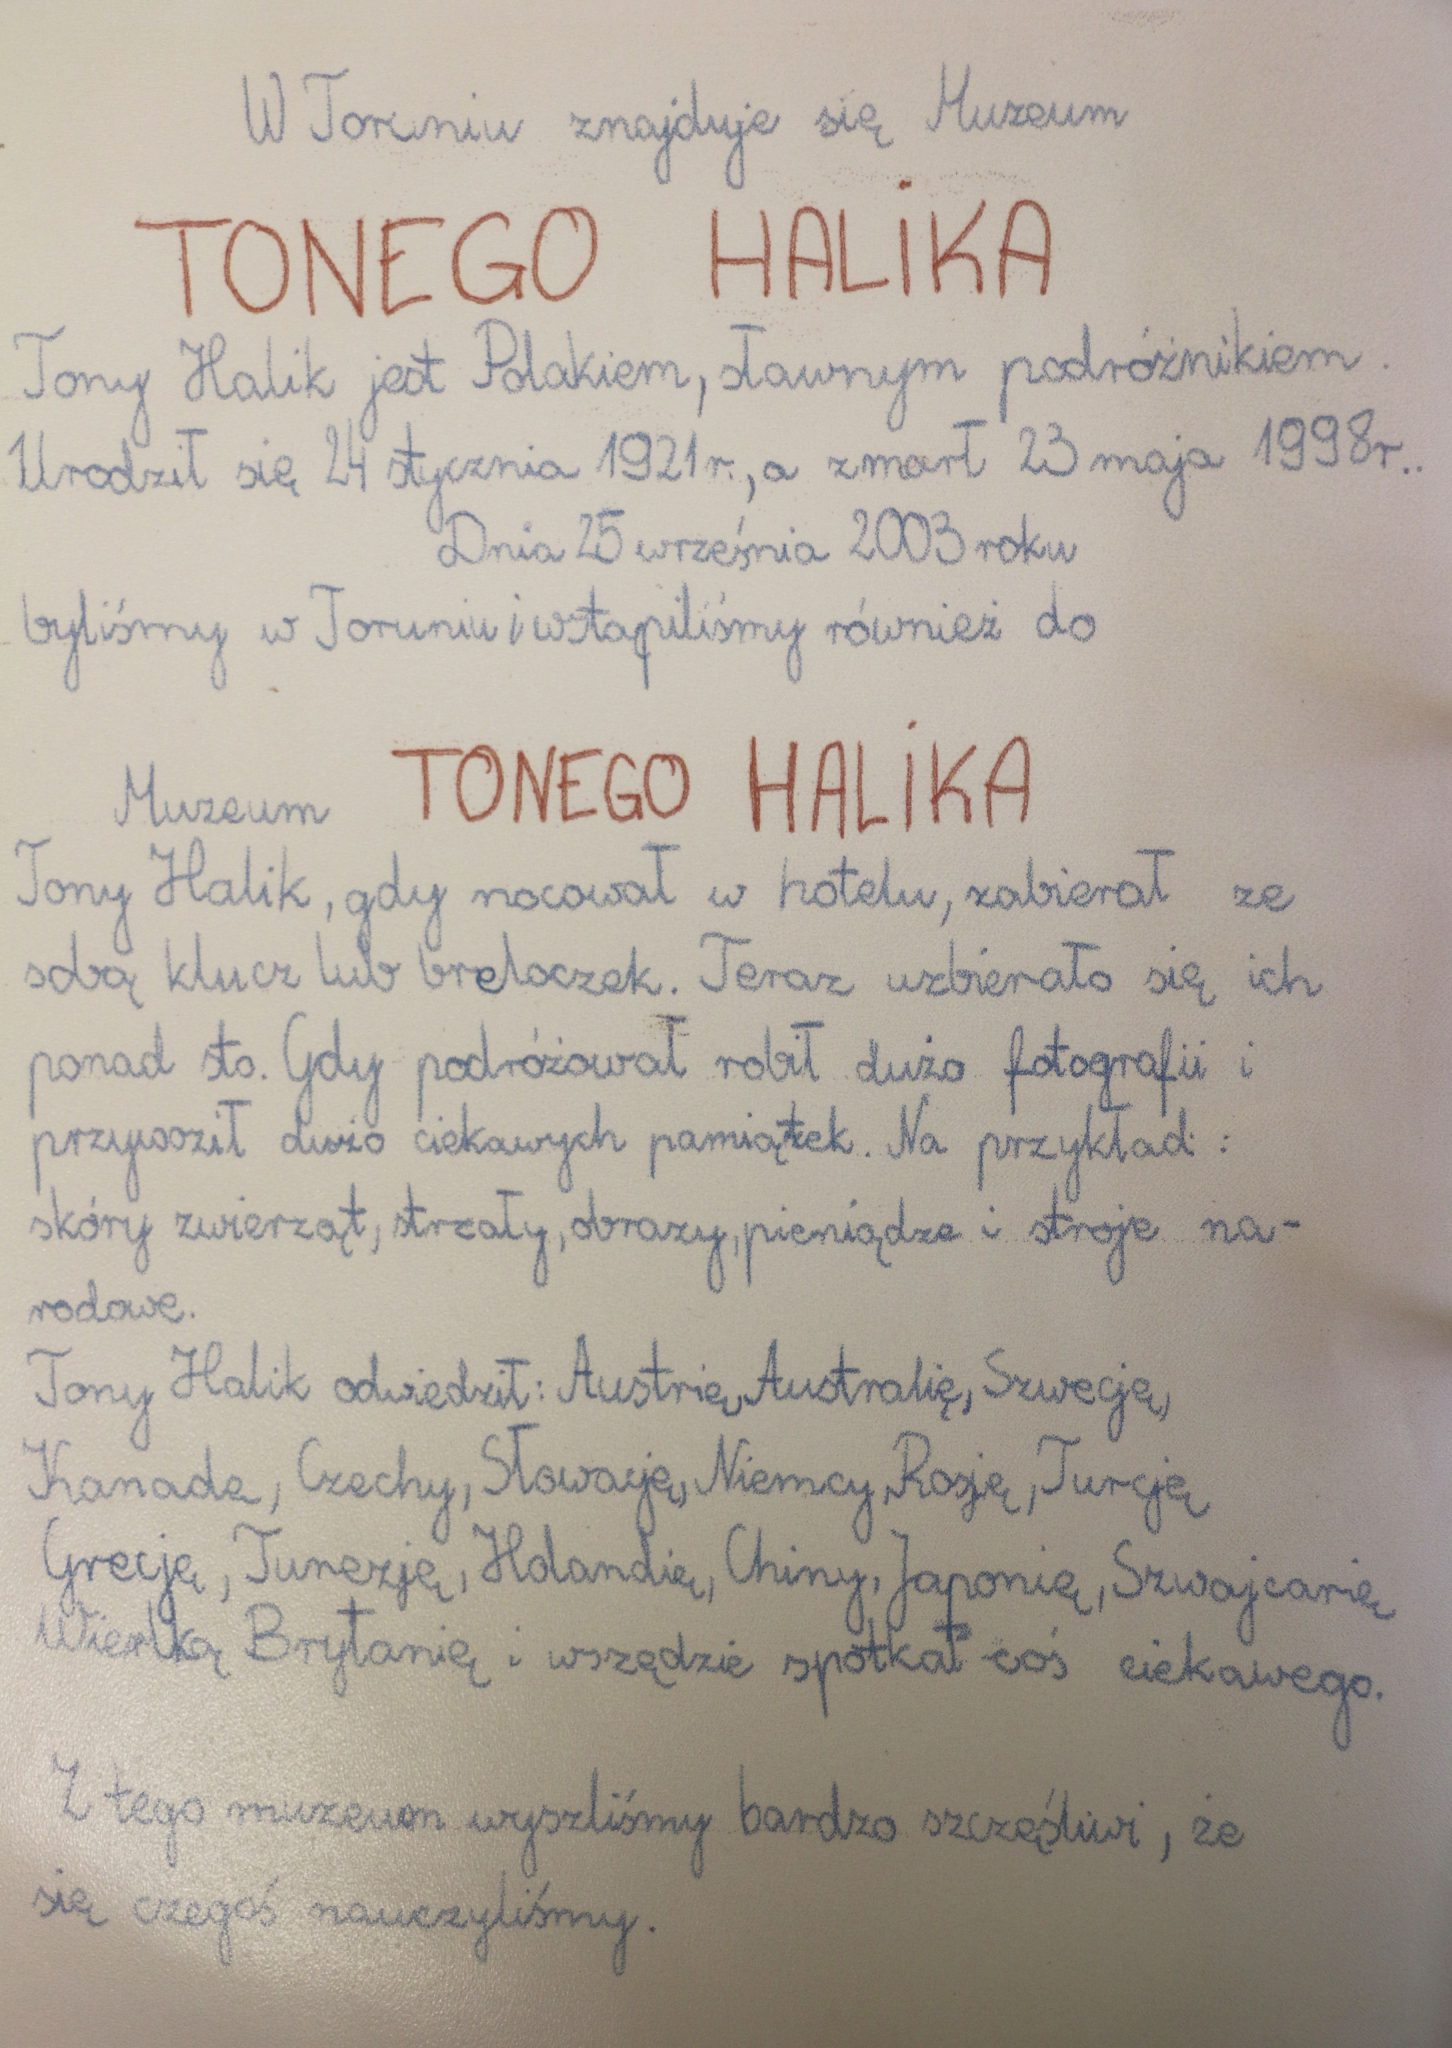 W Toruniu znajduje się Muzeum
TONEGO HALIKA
Tony Halik jest Polakiem, sławnym podróżnikiem.
Urodził się 24 stycznia 1921 r., a zmarł 23 maja 1998 r..
Dnia 25 września 2003 roku
byliśmy w Toruniu i wstąpiliśmy również do
Muzeum TONEGO HALIKA
Tony Halik, gdy nocował w hotelu, zabierał ze
sobą klucz lub breloczek. Teraz uzbierało się ich
ponad sto. Gdy podróżował robił dużo fotografii i
przywoził dużo ciekawych pamiątek. Na przykład:
skóry zwierząt, strzały, obrazy, pieniądze i stroje na-
rodowe.
Tony Halik odwiedził: Austrię, Australię, Szwecję,
Kanadę, Czechy, Słowację, Niemcy, Rosję, Turcję
Grecję, Tunezję, Holandię, Chiny, Japonię, Szwajcarię
Wielką Brytanię i wszędzie spotkał coś ciekawego.
Z tego muzeum wyszliśmy bardzo szczęśliwi, że
się czegoś nauczyliśmy.